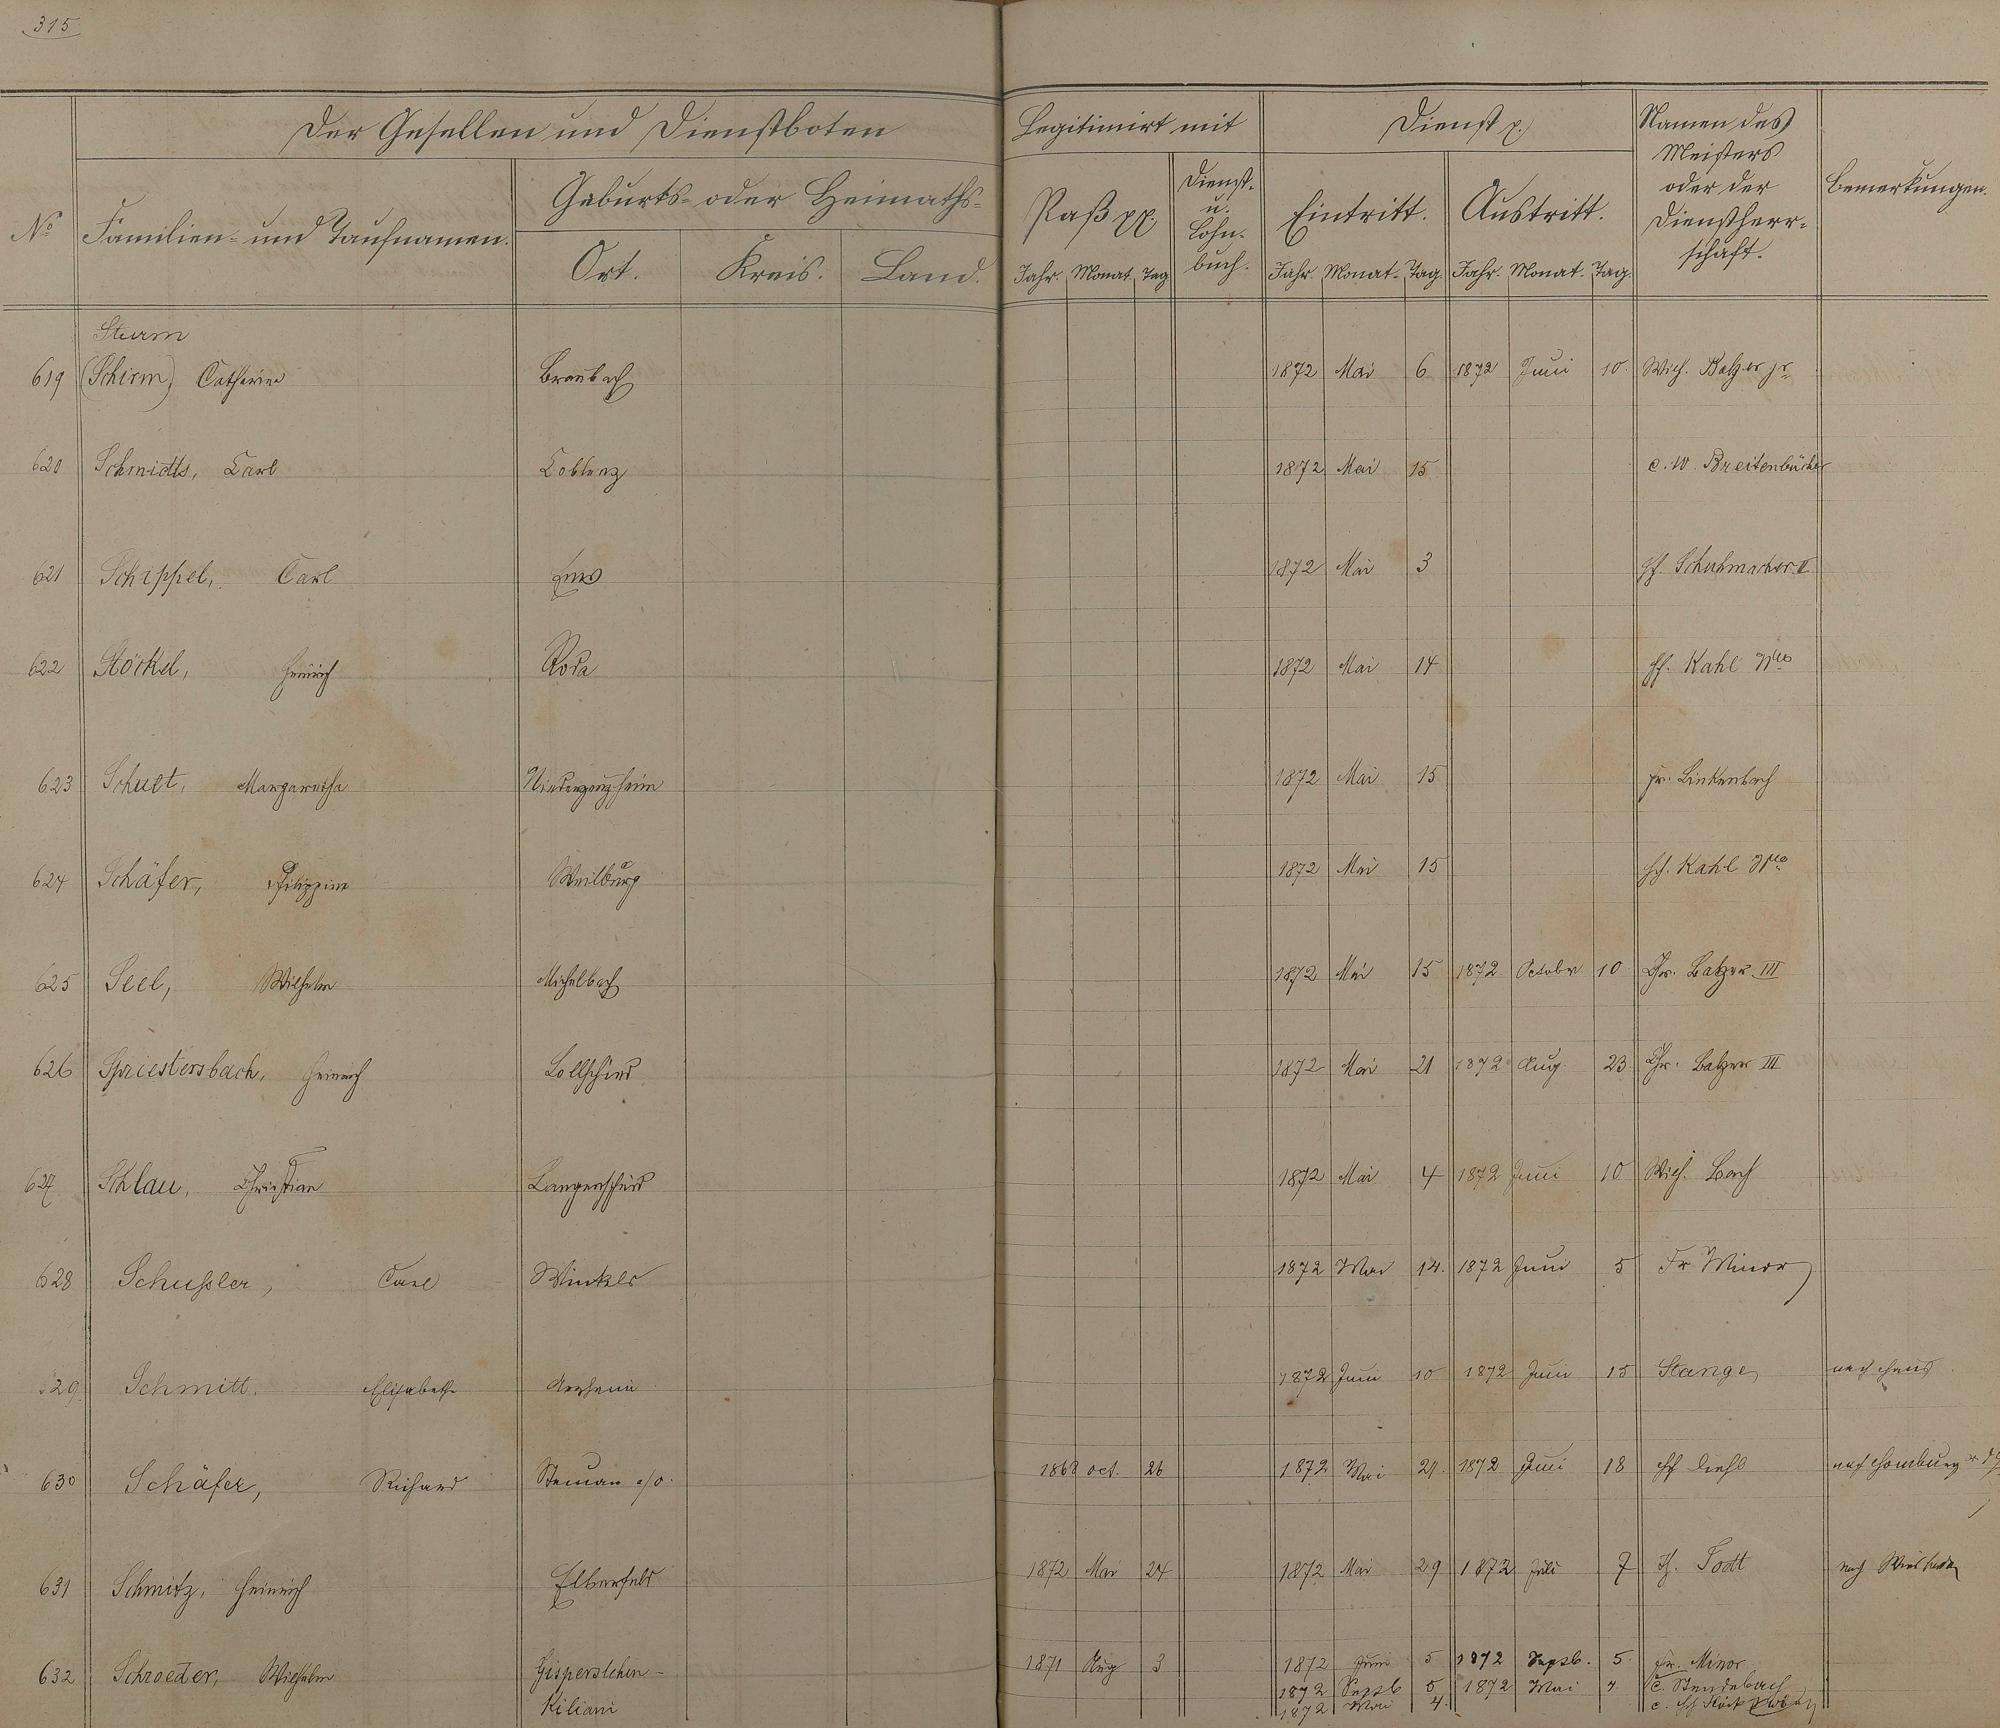 315
Der Gesellen und Dienstboten
Legitimirt mit
Dienst p.
Namen des
Meisters
oder der
Dienstherr-
schaft.
Bemerkungen.
No
Familien- und Taufnamen.
Geburts- oder Heimaths-
Ort. Kreis. Land.
Paß pp.
Dienst-
u.
Lohn-
buch.
Eintritt. Austritt.
Jahr. Monat. Tag Jahr. Monat. Tag Jahr. Monat. Tag.
Sturm
619 (Schirm) Catharine Braubach 1872 Mai 6 1872 Juni 10 Wilh. Balzer jr
620 Schmidts, Carl Coblenz 1872 Mai 15 C. W. Breitenbücher
621 Schippel, Carl Ems 1872 Mai 3 Schuhmacher II
622 Störkel, Heinrich Roda 1872 Mai 14 Kahl
623 Margaretha 1872 Mai 15 Fr. Linkenbach
624 Schäfer, Philippine Weilburg 1872 Mai 15 Kahl
625 Seel, Wilhelm Michelbach 1872 Mai 15 1872 October 10 Chr. Balzer III
626 Spriestersbach, Heinrich Lollschied 1872 Mai 21 1872 Aug. 23 Chr. Balzer III
627 Schlau, Christian Langenscheid 1872 Mai 4 1872 Juni 10 Wilh. Bach
628 Schußler, Carl Winkel 1872 Mai 14. 1872 Juni 5 Fr Minor
629 Schmitt. Elisabethe 1872 Juni 10 1872 Juni 15 Stange nach
630 Schäfer, Richard 1868 oct. 26 1872 Mai 24. 1872 Juni 18 Diehl nach Homburg
631 Schmitz, Heinrich Elberfeld 1872 Mai 24 1872 Mai 29 1872 Juli 7 Todt nach Wiesbaden
632 Schroeder, Wilhelm Gispersleben- 1871 Aug 3 1872 Juni 5 1872 Septb. 5. Fr. Minor
Kiliani 1872 Septb 5 1872 Mai 4 C. Stendebach
1872 Mai 4.